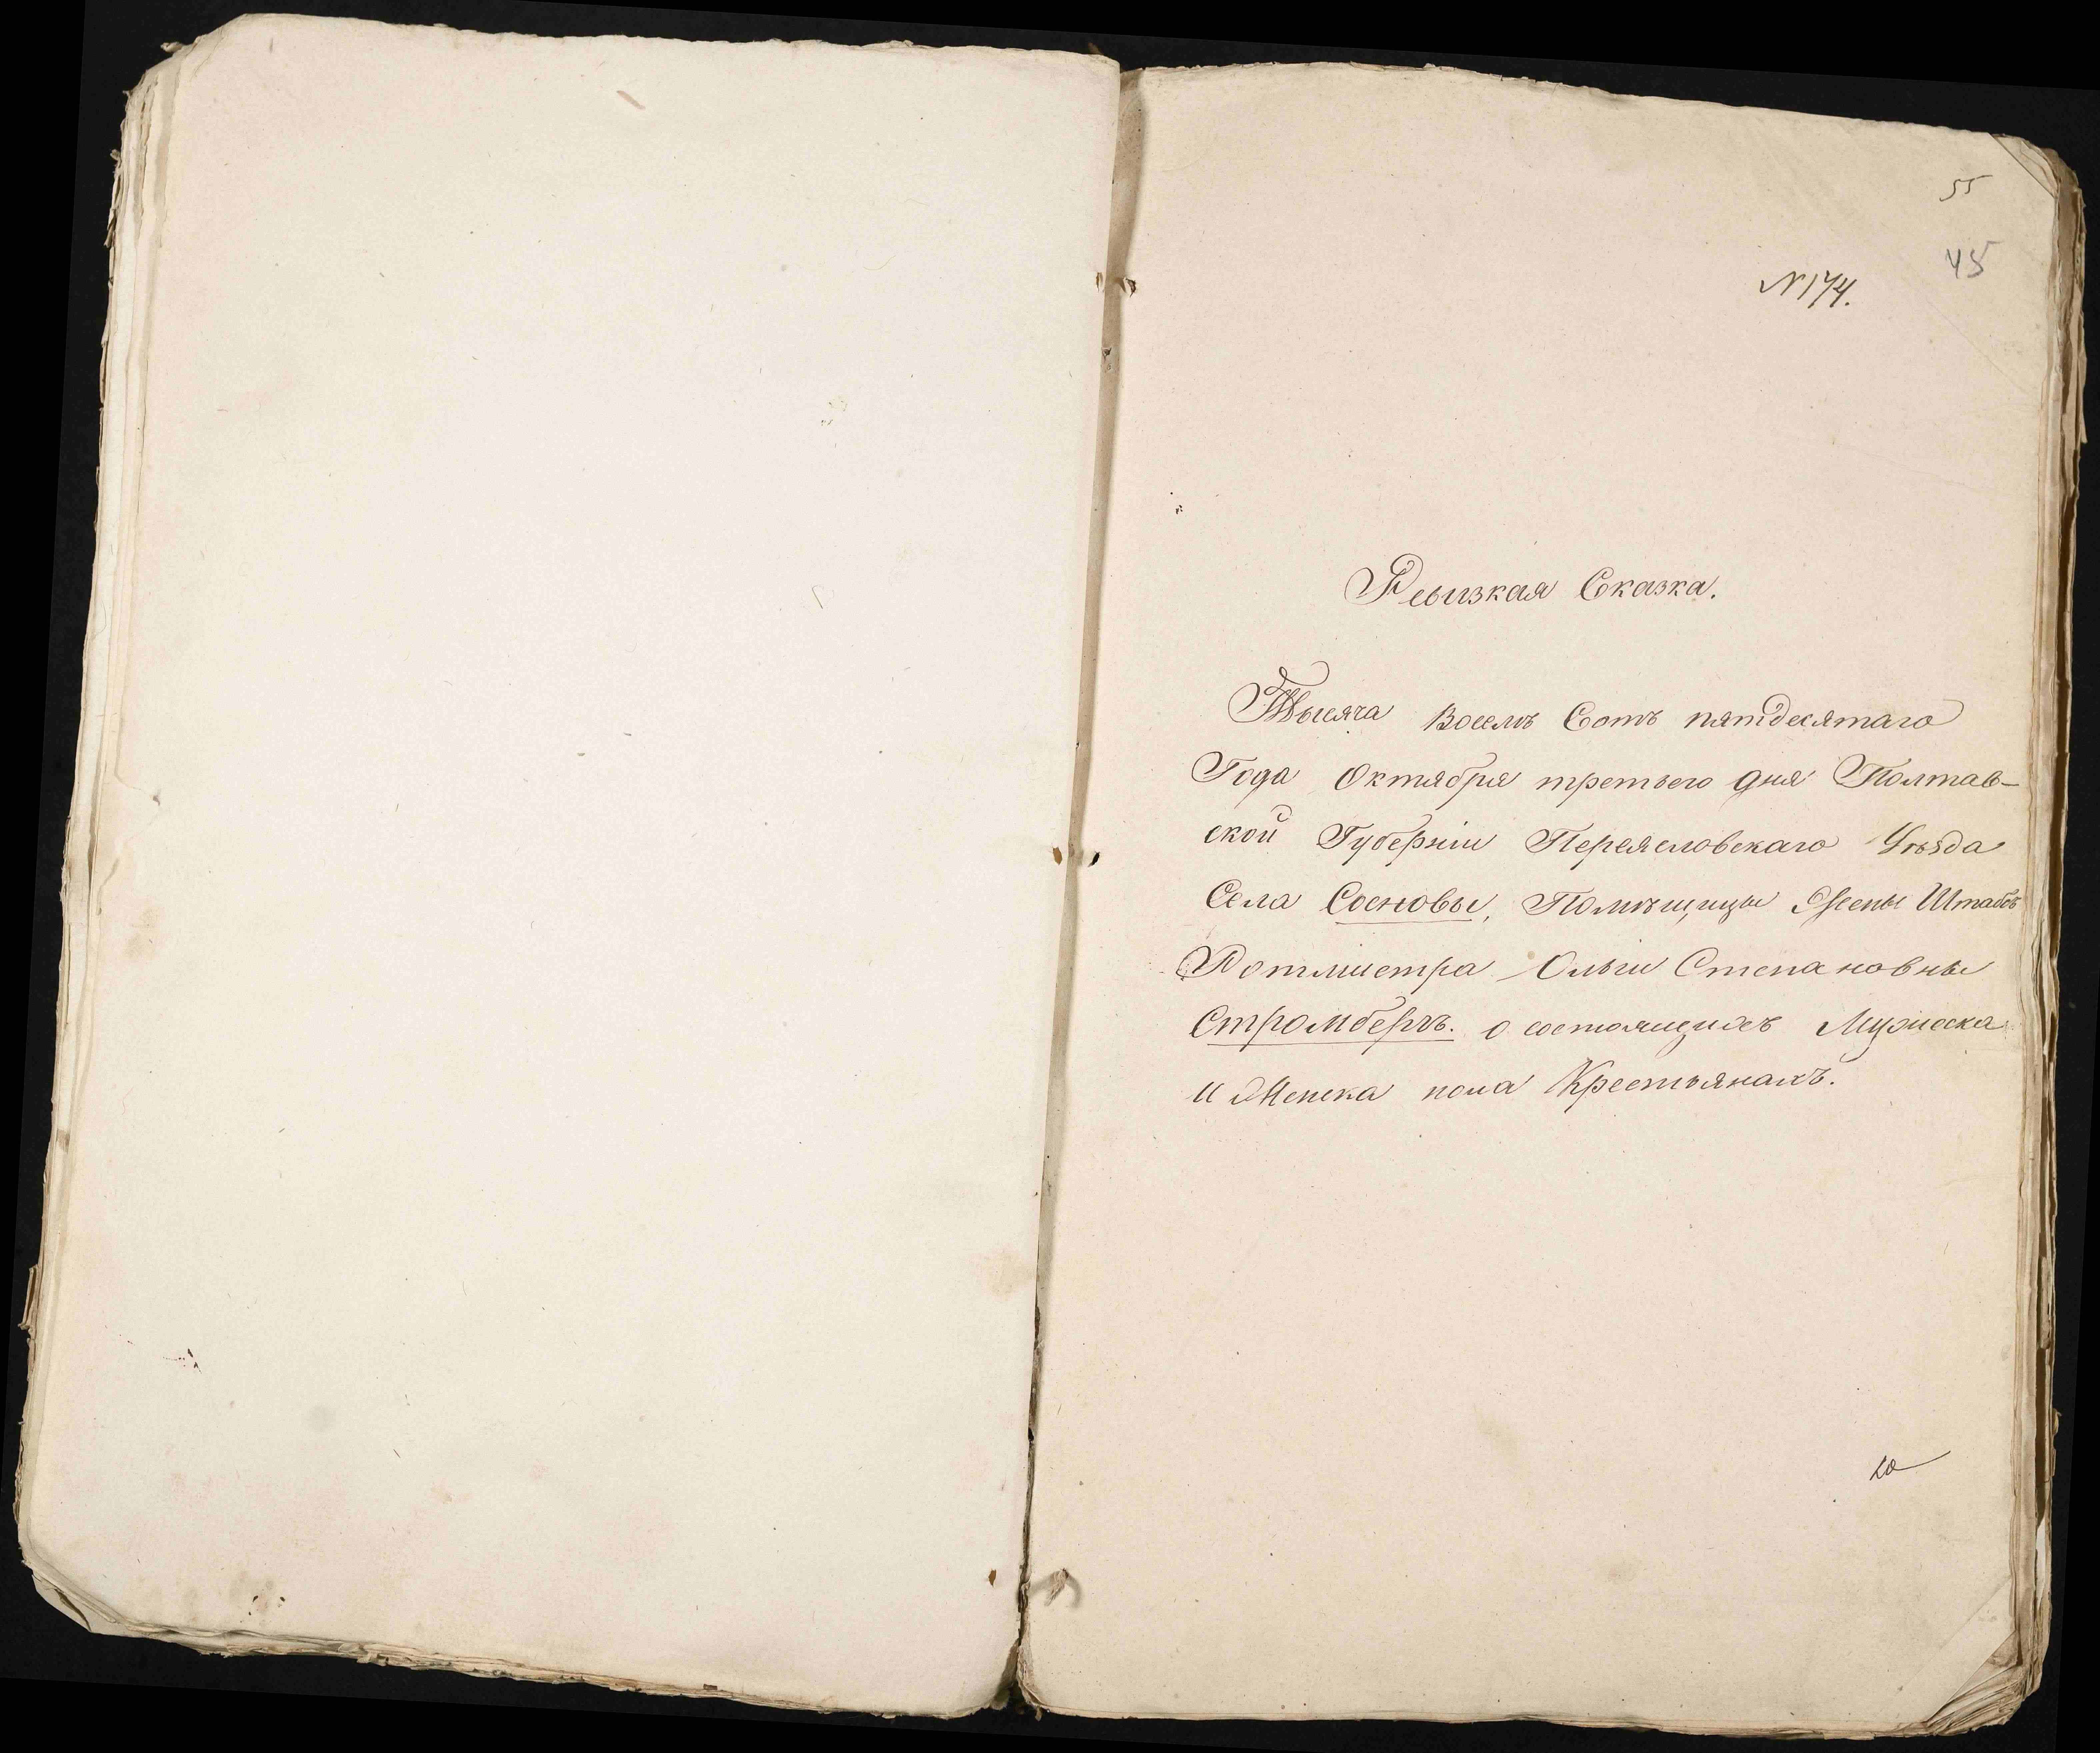 55
45
№174.
Ревизкая Сказка.
Тысяча Восемъ Сотъ пятдесятаго
Года Октября третьего дня Полтав-
ской Губерніи Переясловскаго Уѣзда
Села Сосновы, Помѣщицы Жены Штабъ
Ротмистра Ольги Степановны
Стромбергъ. о состоящихъ Мужеска
и Женска пола Крестьянахъ.